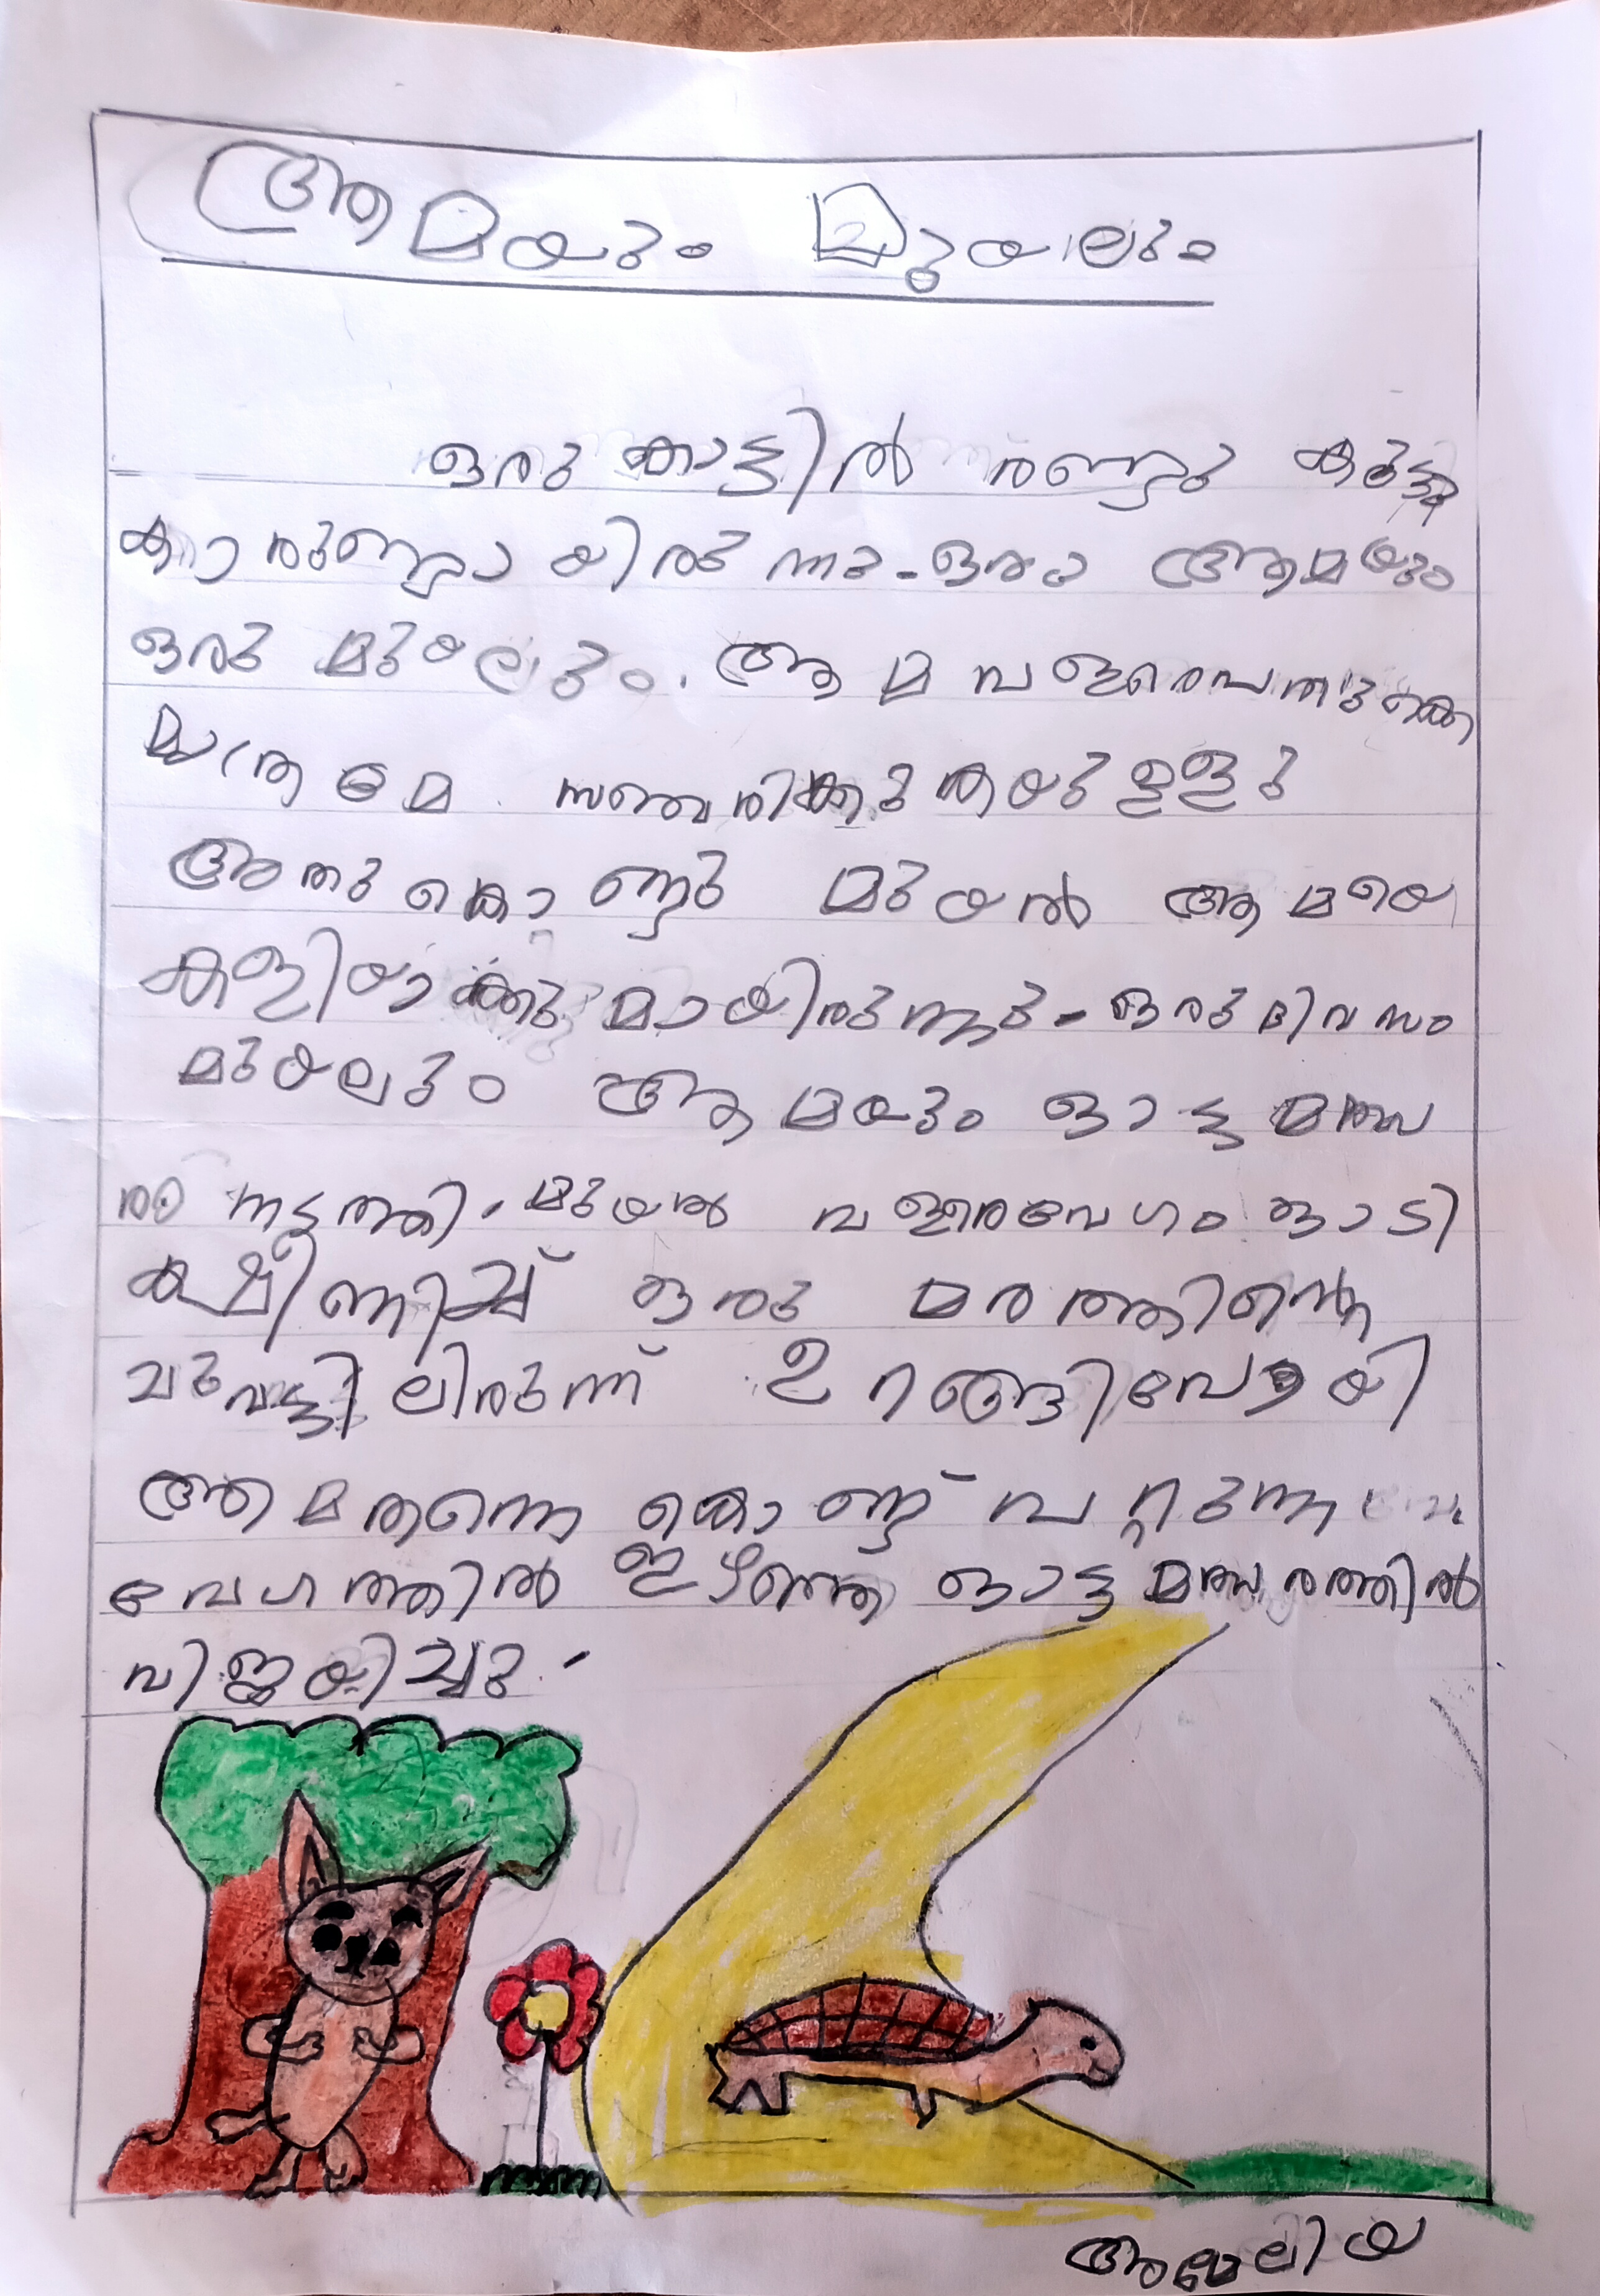 ആമയും മുയലും
ഒരു കാട്ടിൽ രണ്ടു കുട്ടു
കാരുണ്ടായിരുന്നു. ഒരു ആമയും
ഒരു മുയലും. ആമ വളരെപതുക്കെ
മാത്രമേ സഞ്ചരിക്കുകയുള്ളു
അതുകൊണ്ടു മുയൽ ആമയെ
കളിയാക്കുമായിരുന്നു. ഒരു ദിവസം
മുയലും ആമയും ഓട്ടമത്സ
രം നടത്തി. മുയൽ വളരവേഗം ഓടി
ക്ഷീണിച്ച് ഒരു മരത്തിന്റെ
ചുവട്ടിലിരുന്ന് ഉറങ്ങിപോയി
ആമതന്നെ കൊണ്ട് പറ്റുന്ന
വേഗത്തിൽ ഇഴഞ്ഞ് ഓട്ടമത്സരത്തിൽ
വിജയിച്ചു.
അമേലിയ